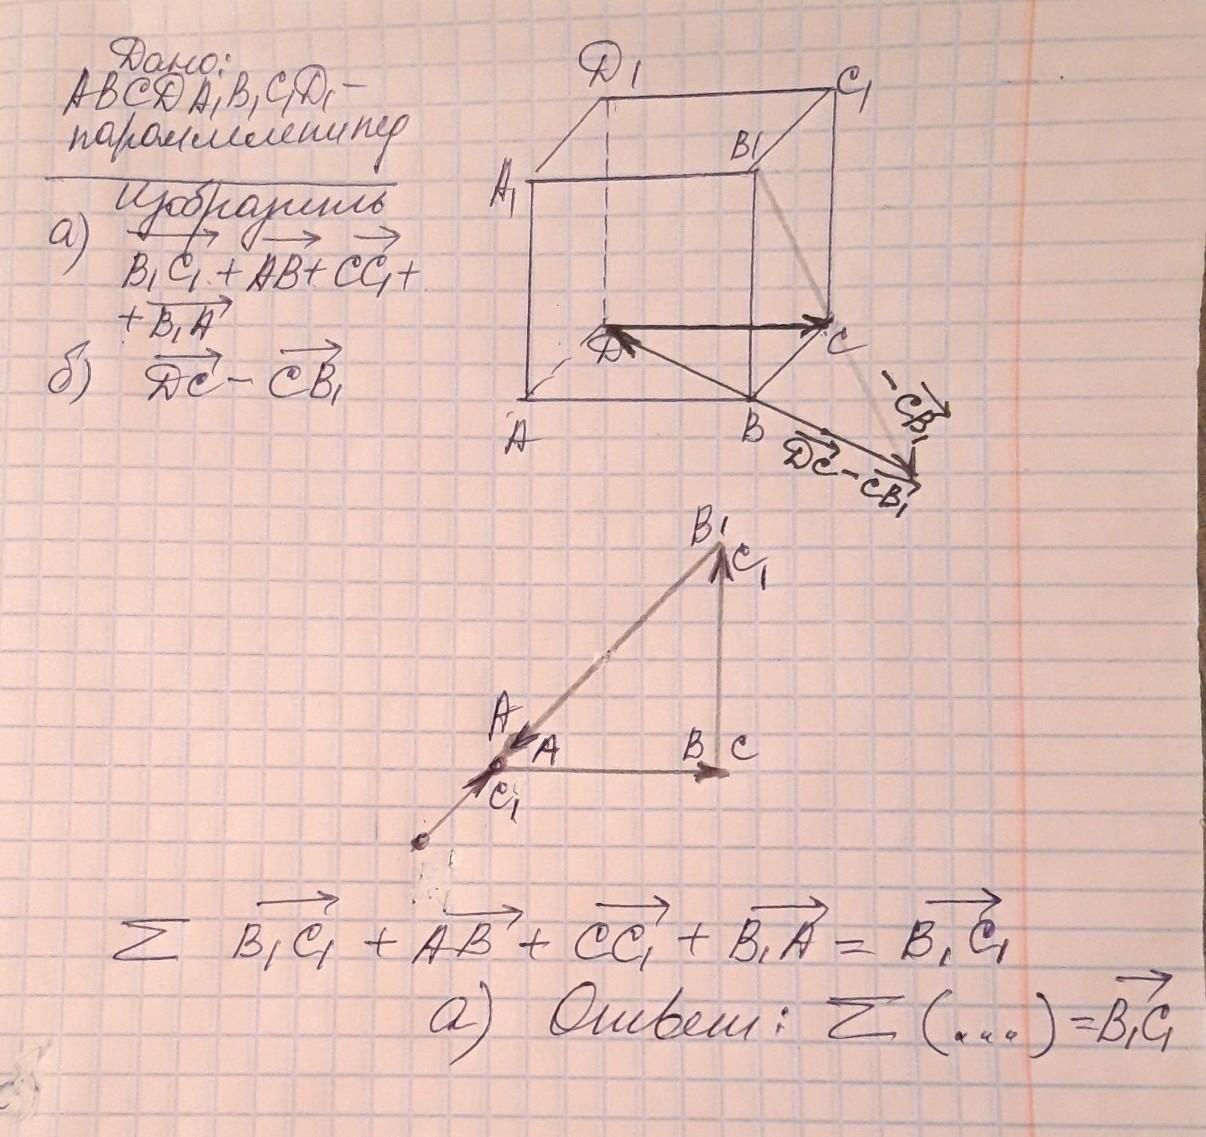 Дано:
ABCDA₁B₁C₁D₁ –
параллелепипед
Изобразить
а) B₁C₁ + AB + CC₁ +
+ B₁A
б) DC – CB₁
D₁
C₁
B₁
A₁
D
C
A
B
–CB₁
DC – CB₁
B₁
C₁
A
A
B
C
C₁
Σ B₁C₁ + AB + CC₁ + B₁A = B₁C₁
а) Ответ: Σ(...) = B₁C₁